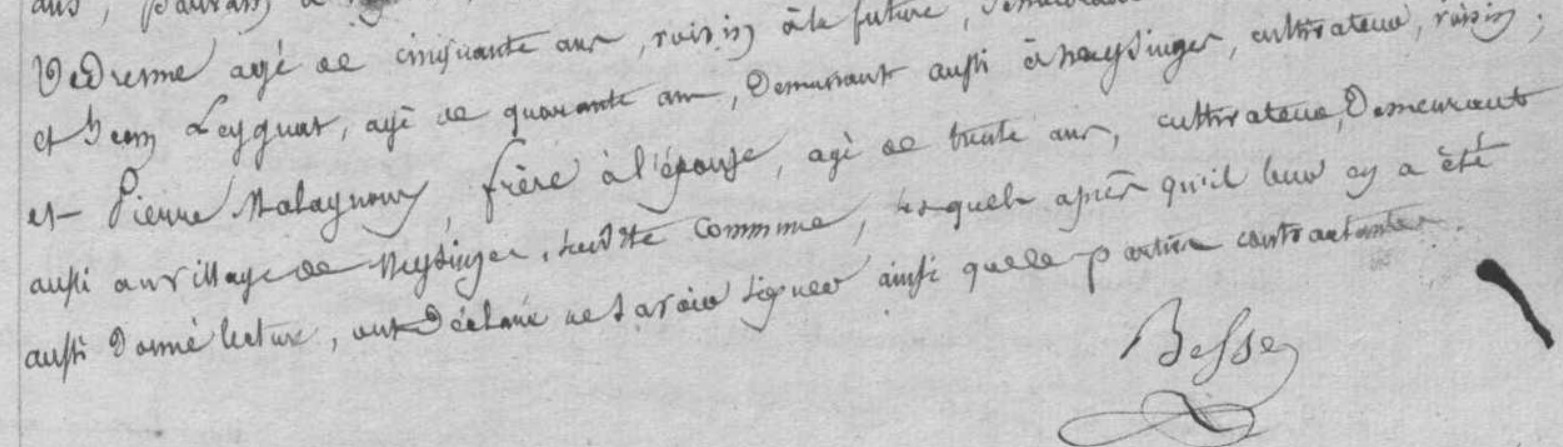 ans,
Vedrenne agé de cinquante ans, voisin à la future,
et Jean Leygnac, agé de quarante ans, Demeurant aussi à Neysinger, cultivateur, voisin,
et Pierre Malagnoux, frère à l'épouse, agé de trente ans, cultivateur, Demeurant
aussi au village de Neysinger, susdite Commune, lesquels après qu'il leur en a été
aussi Donné lecture, ont Déclaré ne savoir signer ainsi que les parties contractantes.
Besse